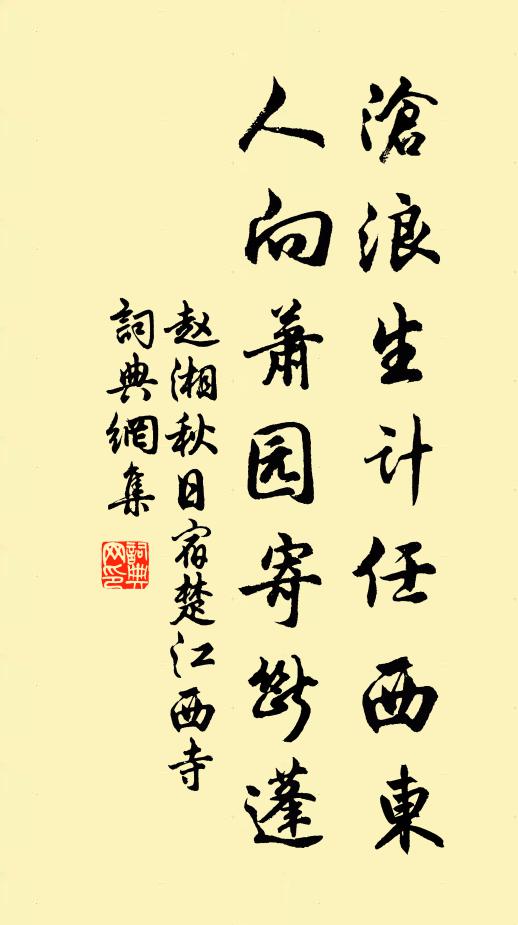 滄浪生计任西東
人向蕭园寄斷蓬
赵湘秋日宿楚江西寺
詞典網集
詞典网印